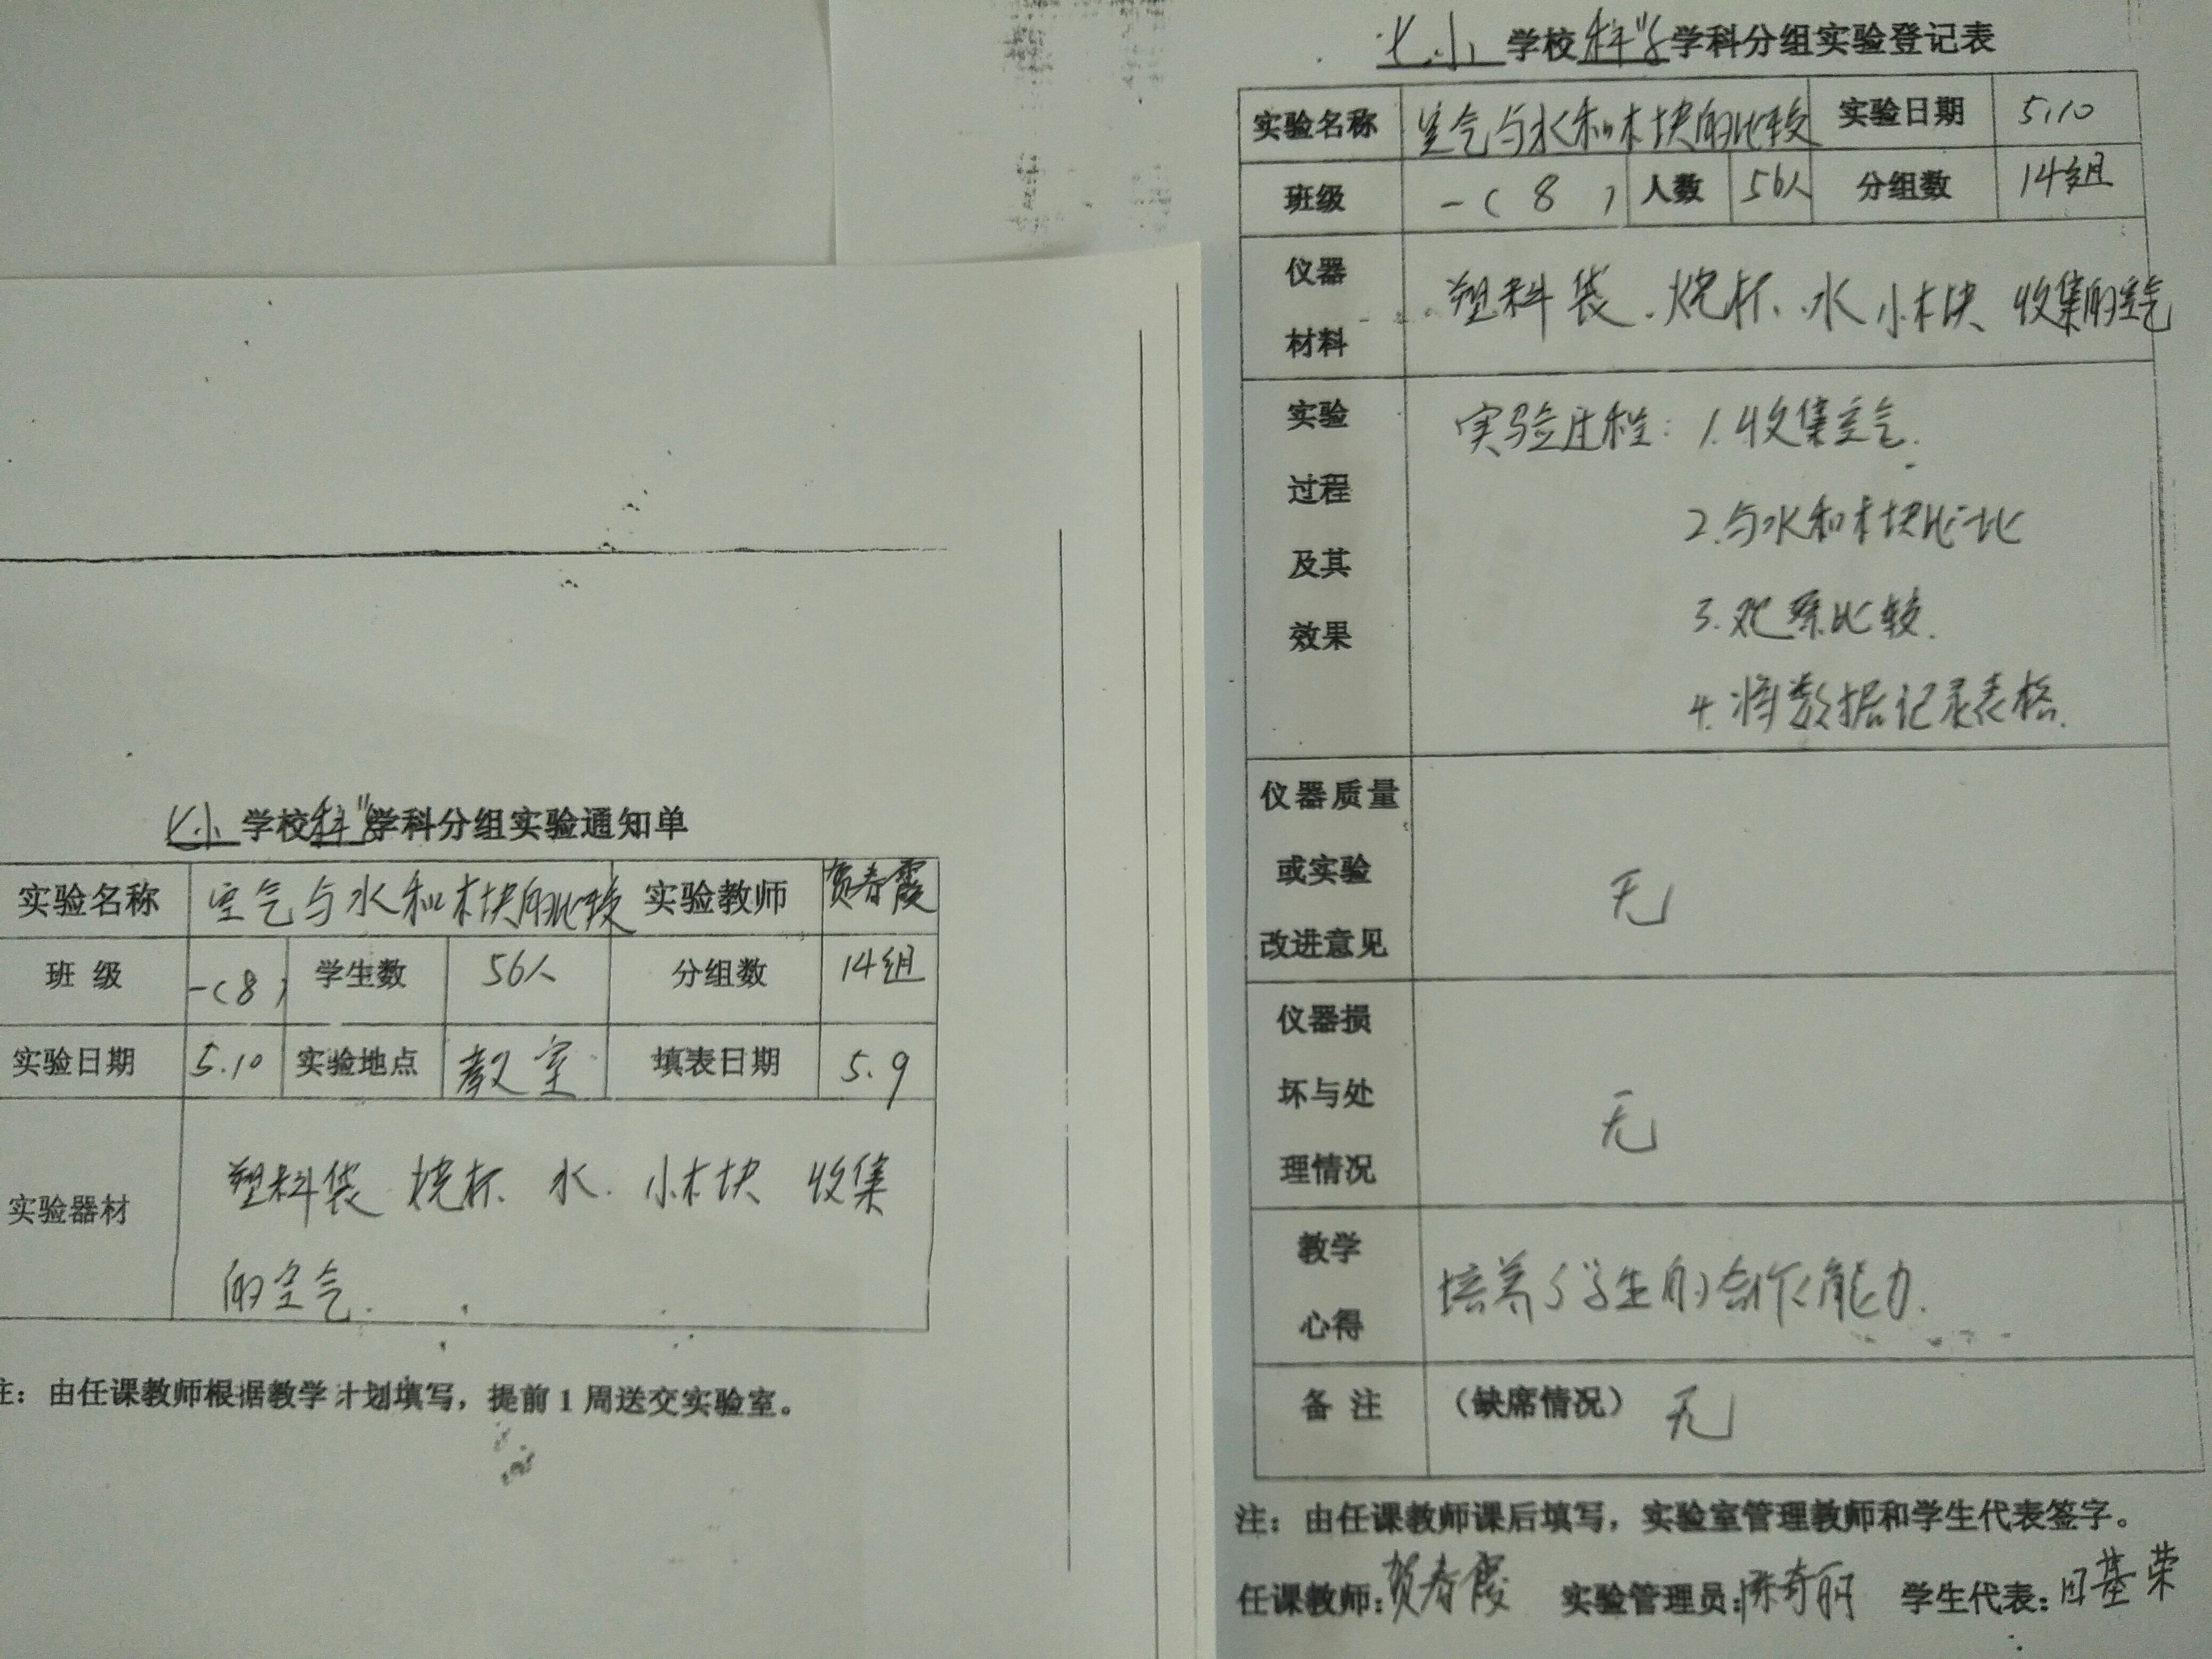 七小学校科学学科分组实验通知单
实验名称 空气与水和木块的比较 实验教师 贺春霞
班 级 一(8) 学生数 56人 分组数 14组
实验日期 5.10 实验地点 教室 填表日期 5.9
实验器材 塑料袋 烧杯、水、小木块 收集
的空气.
注：由任课教师根据教学计划填写，提前1周送交实验室。
七小学校科学学科分组实验登记表
实验名称 空气与水和木块的比较 实验日期 5.10
班级 一(8) 人数 56人 分组数 14组
仪器
材料
塑料袋、烧杯、水 小木块、收集的空气
实验
过程
及其
效果
实验过程：1.收集空气.
2.与水和木块比一比
3.观察比较.
4.将数据记录表格.
仪器质量
或实验
改进意见
无
仪器损
坏与处
理情况
无
教学
心得
培养了学生的合作能力.
备 注 （缺席情况） 无
注：由任课教师课后填写，实验室管理教师和学生代表签字。
任课教师：贺春霞 实验管理员：陈奇丽 学生代表：田基荣